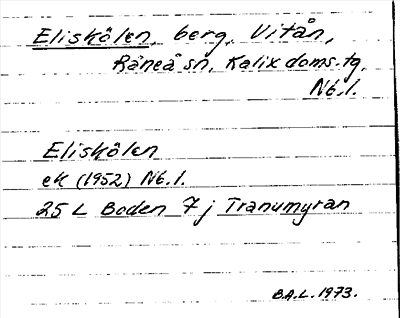 Eliskölen, berg, Vitån,
Råneå sn, Kalix doms.tg,
Nb.l.
Eliskölen
ek (1952) Nb.l.
25 L Boden 7 j Tranumyran
B.A.L. 1973.